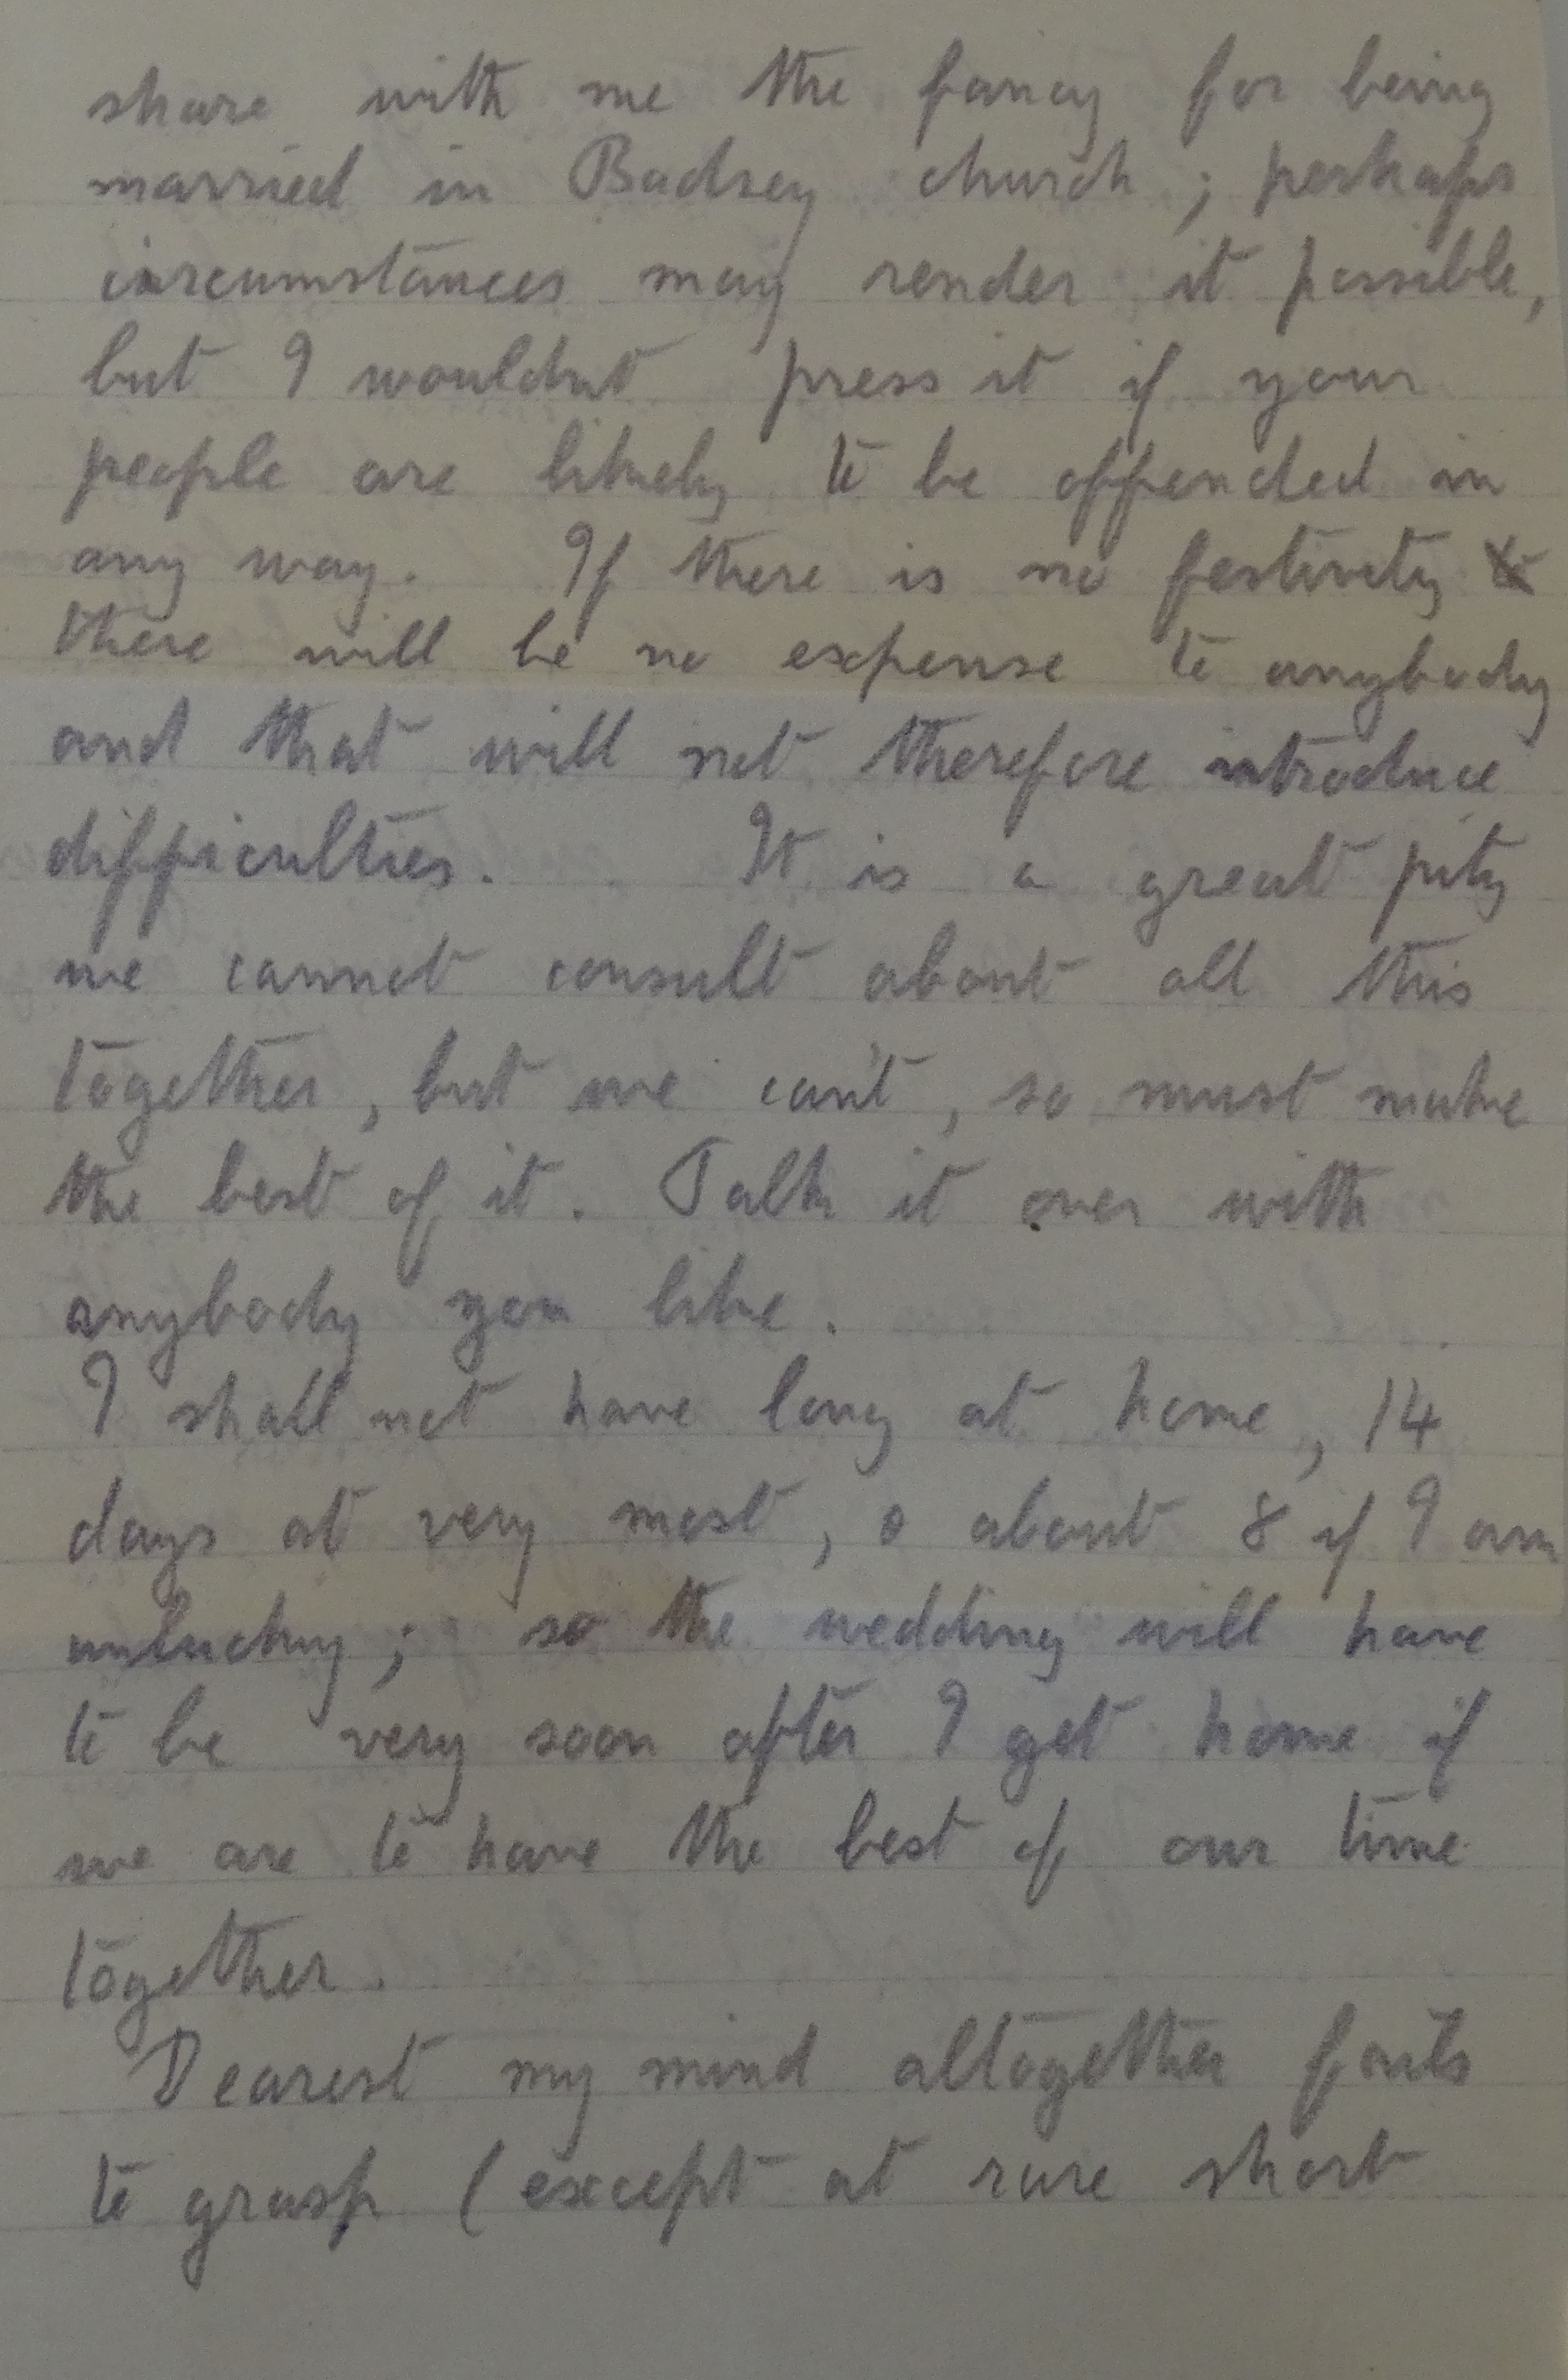 share with me the fancy for being
married in Badsey church ; perhaps
circumstances may render it possible,
but I wouldnt press it if your
people are likely to be offended in
any way. If there is no festivity to
there will be no expense to anybody
and that will not therefore introduce
difficulties. It is a great pity
we cannot consult about all this
together, but we can't, so must make
the best of it. Talk it over with
anybody you like.
I shall not have long at home, 14
days at very most, o about 8 if I am
unlucky; so the wedding will have
to be very soon after I get home if
we are to have the best of our time
together.
Dearest my mind altogether fails
to grasp (except at rare short